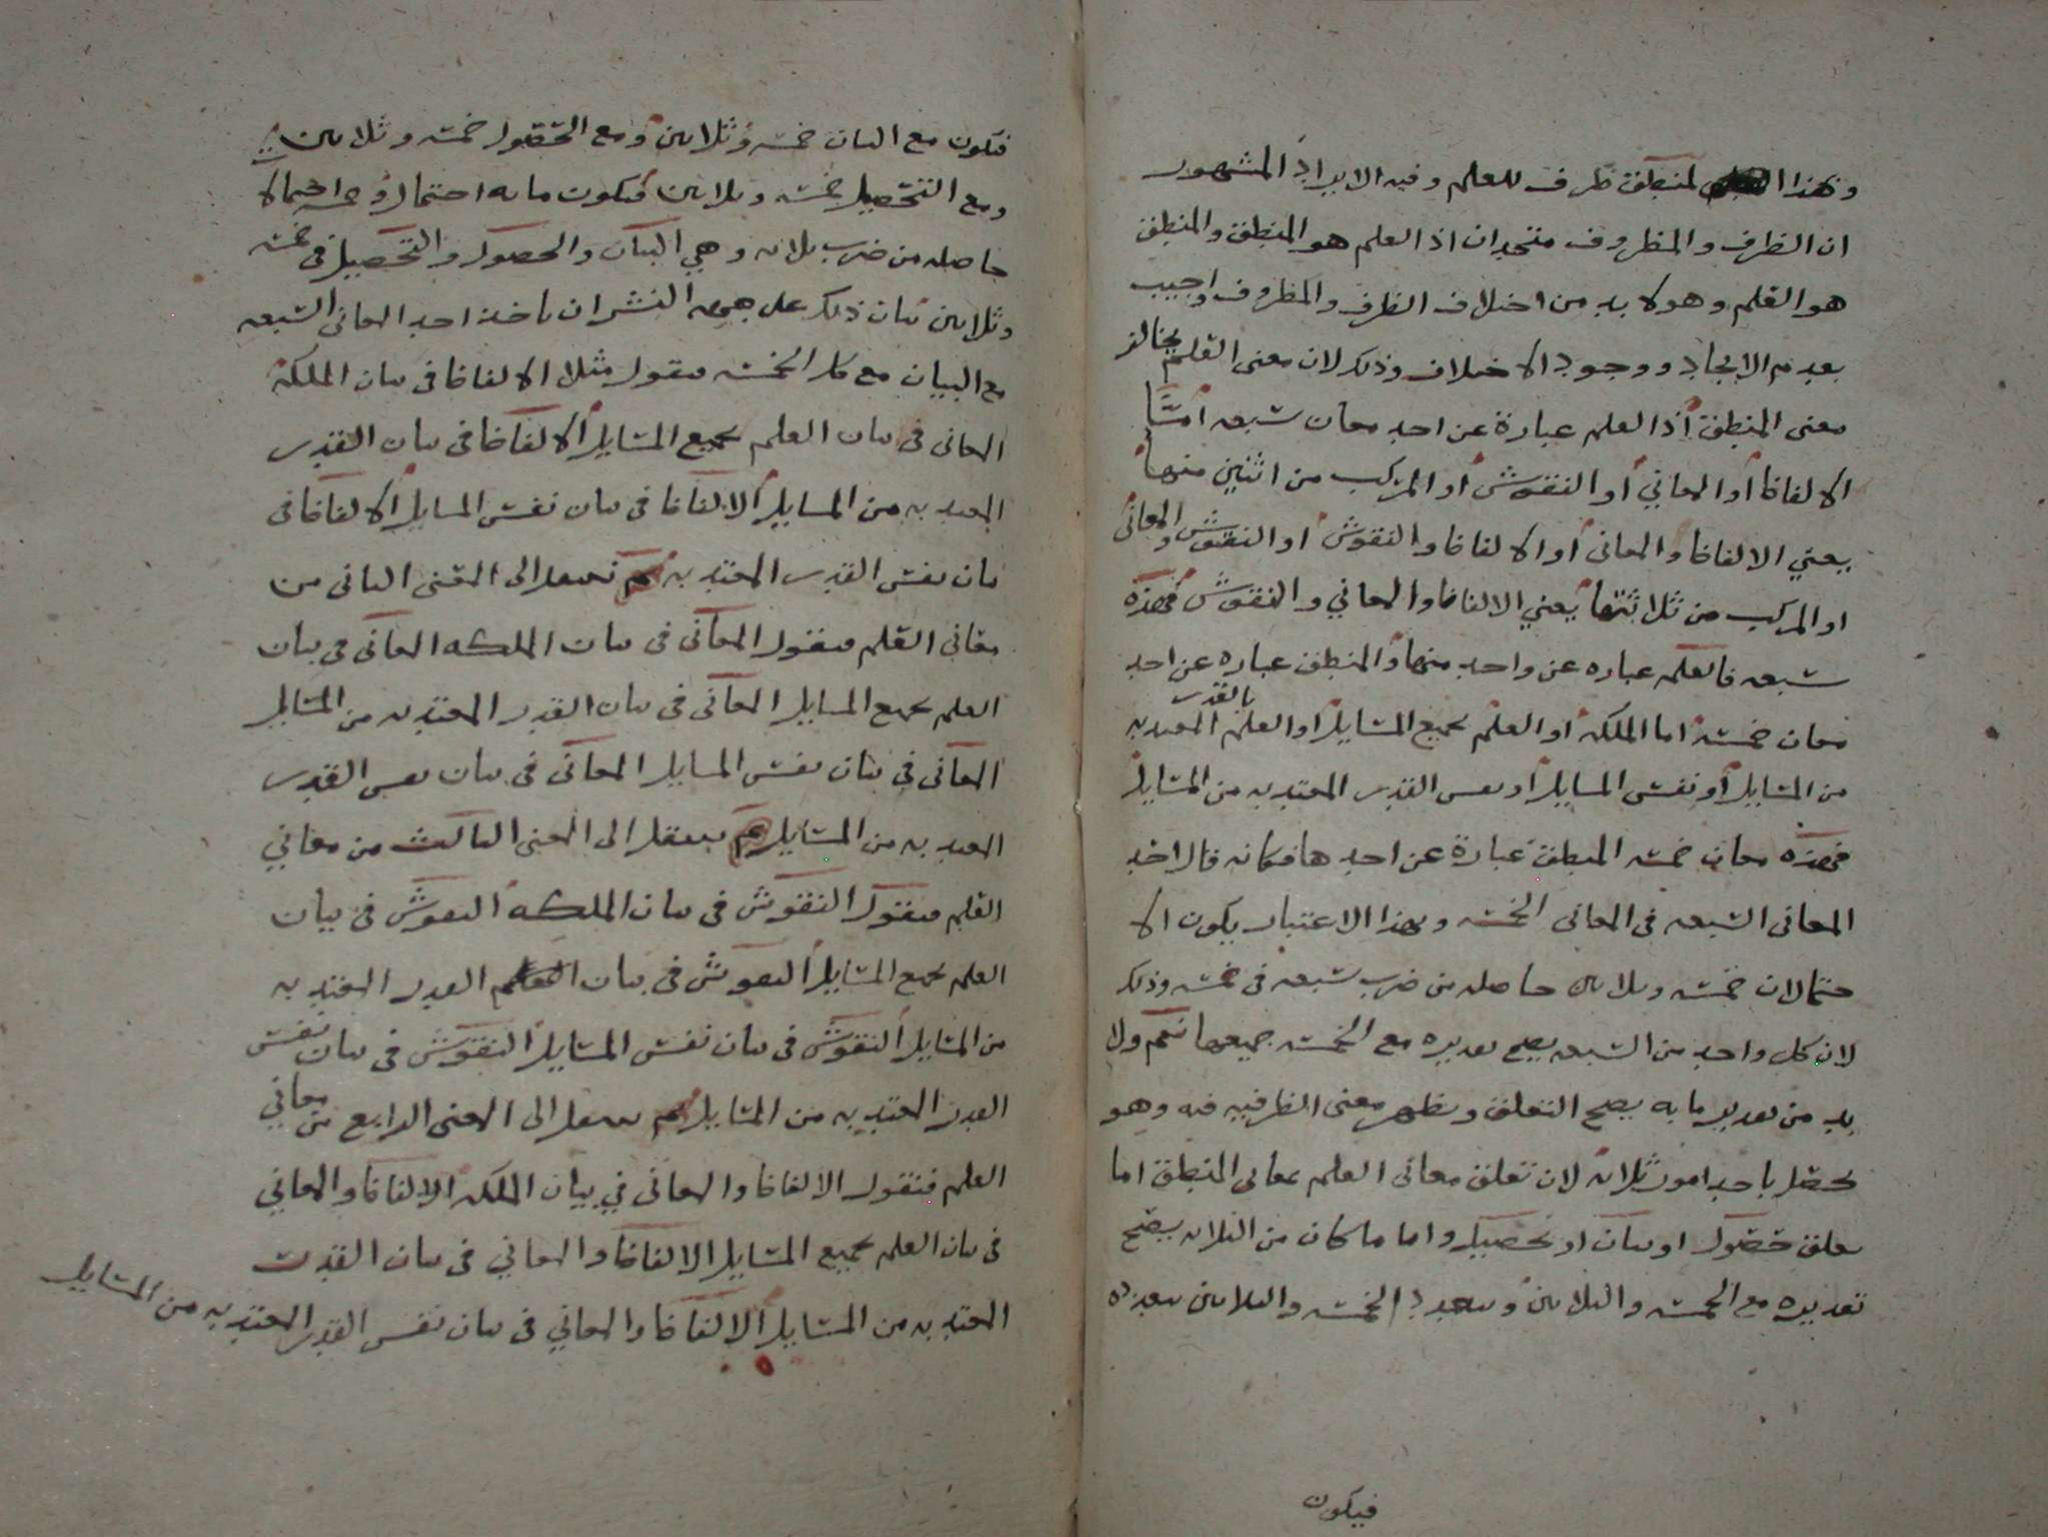 وهذا المنطق ظرف للعلم وفيه الايراد المشهور
ان الظرف والمظروف متحدان اذ العلم هو المنطق والمنطق
هو العلم وهو لا بد من اختلاف الظرف والمظروف واجيب
بعدم الاتحاد ووجود الاختلاف وذلك لان معنى العلم يخالف
معنى المنطق اذ العلم عبارة عن احد معان سبعه اما
الالفاظ او المعاني او النقوش او المركب من اثنين منها
يعني الالفاظ والمعاني او الالفاظ والنقوش او النقوش والمعاني
او المركب من ثلاثتها يعني الالفاظ والمعاني والنقوش فهذه
سبعه فالعلم عباره عن واحد منها والمنطق عباره عن احد
معان خمسة اما الملكه او العلم بجميع المسايل او العلم بالقدر المعتد به
من المسايل او نفس المسايل او نفس القدر المعتد به من المسايل
فهذه معان خمسه المنطق عبارة عن احدها فكانه قال احد
المعاني السبعه في المعاني الخمسه وبهذا الاعتبار يكون الا
حتمالات خمسه وثلاثين حاصله من ضرب سبعه في خمسه وذلك
لان كل واحد من السبعه يصح تقديره مع الخمسه جميعها نعم ولا
بد من تقدير ما به يصح التعلق ويظهر معنى الظرفيه فيه وهو
يحصل باحد امور ثلاثه لان تعلق معاني العلم بمعاني المنطق اما
تعلق حصول او بيان او تحصيل واما ما كان من الثلاثه يصح
تقديره مع الخمسه والثلاثين وتعدد الخمسه والثلاثين بعدده
فيكون
فيكون مع البيان خمسه وثلاثين ومع الحصول خمسه وثلاثين
ومع التحصيل خمسه وثلاثين فيكون مايه احتمال وخمسه احتمالا
حاصله من ضرب ثلاثه وهي البيان والحصول والتحصيل في خمسه
وثلاثين بيان ذلك على جهه النشر ان ناخذ احد المعاني السبعه
مع البيان مع كل الخمسه فنقول مثلا الالفاظ في بيان الملكة
المعاني في بيان العلم بجميع المسايل الالفاظ في بيان القدر
المعتد به من المسايل الالفاظ في بيان نفس المسايل الالفاظ في
بيان نفس القدر المعتد به ثم ننتقل الى المعنى الثاني من
معاني العلم فنقول المعاني في بيان الملكه المعاني في بيان
العلم بجميع المسايل المعاني في بيان القدر المعتد به من المسايل
المعاني في بيان نفس المسايل المعاني في بيان نفس القدر
المعتد به من المسايل ثم ننتقل الى المعنى الثالث من معاني
العلم فنقول النقوش في بيان الملكه النقوش في بيان
العلم بجميع المسايل النقوش في بيان القدر المعتد به
من المسايل النقوش في بيان نفس المسايل النقوش في بيان نفس
القدر المعتد به من المسايل ثم ننتقل الى المعنى الرابع من معاني
العلم فنقول الالفاظ والمعاني في بيان الملكه الالفاظ والمعاني
في بيان العلم بجميع المسايل الالفاظ والمعاني في بيان القدر
المعتد به من المسايل الالفاظ والمعاني في بيان نفس القدر المعتد به من المسايل